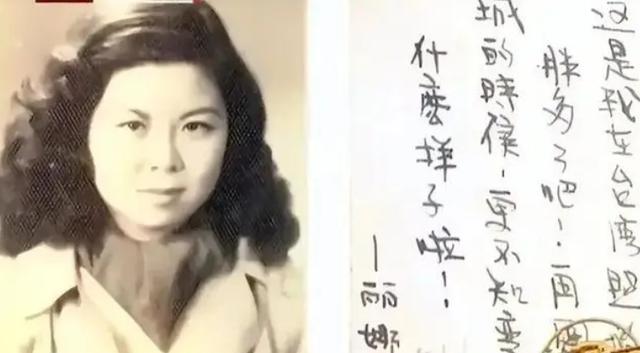 这是我在台湾
胖多了吧！再
城的時候，更不知变
什麽样子啦！
—丽娜